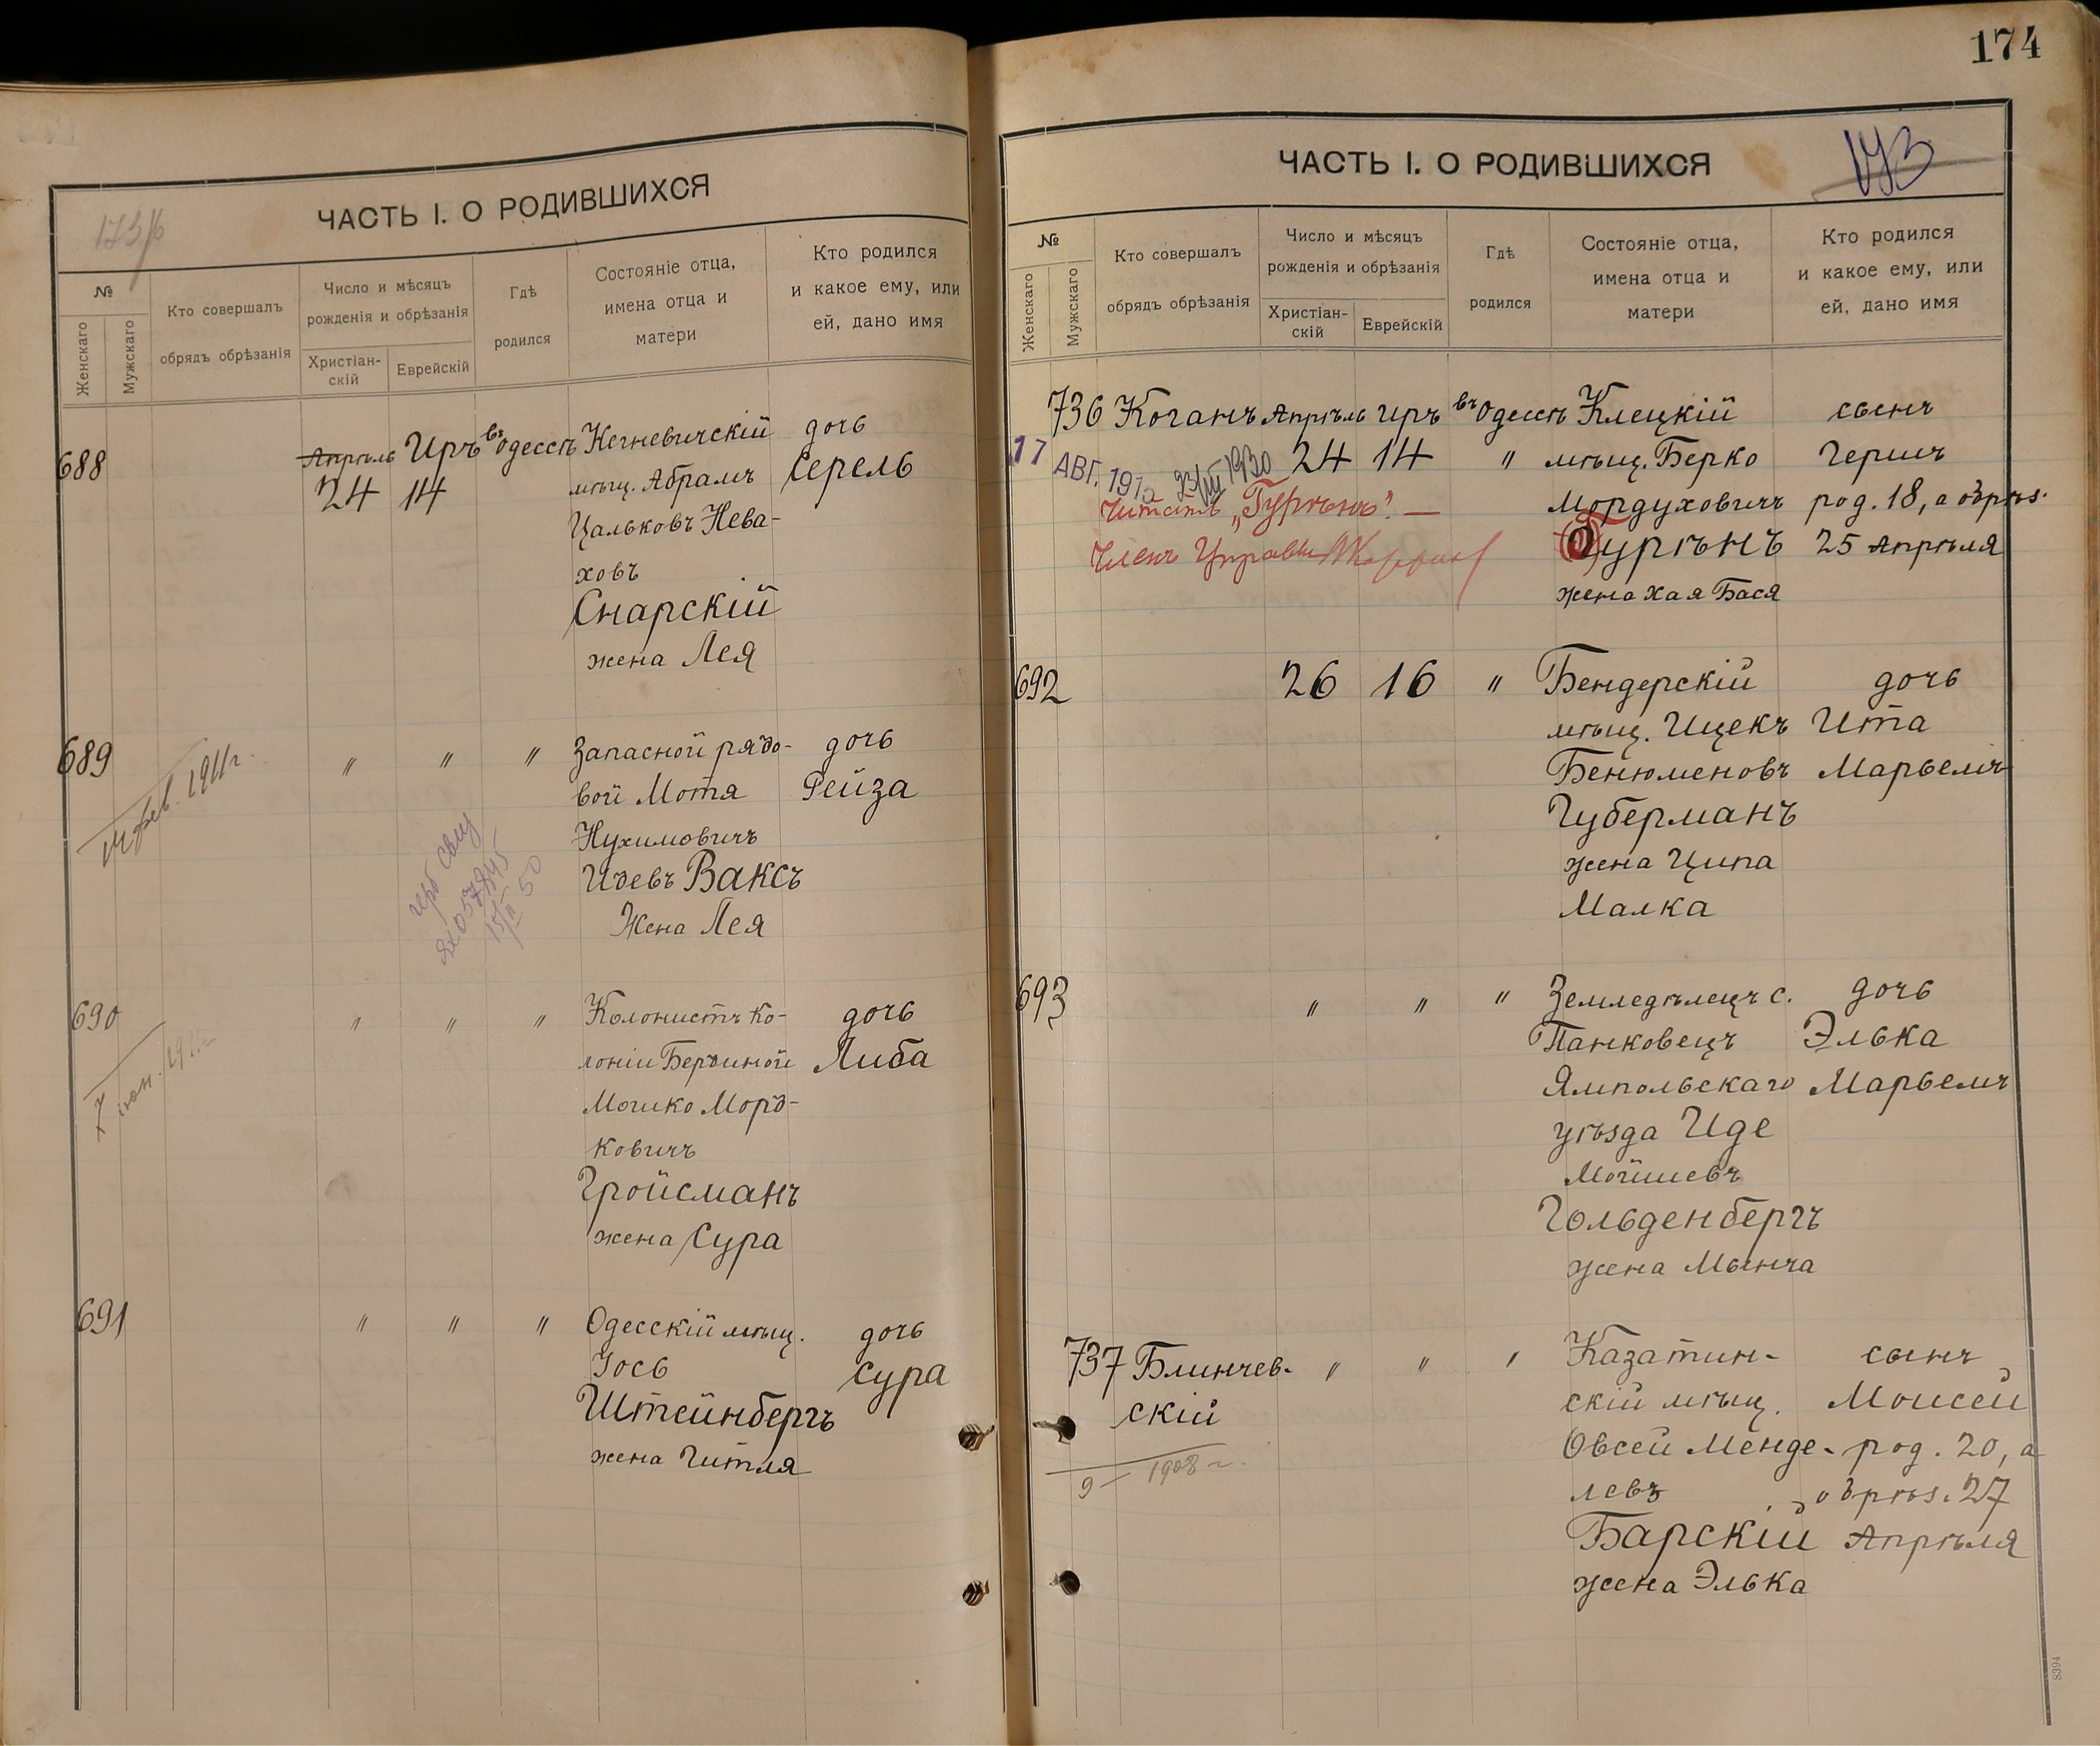 174
173/б
ЧАСТЬ I. О РОДИВШИХСЯ
№
Женскаго
Мужскаго
Кто совершалъ
обрядъ обрѣзанія
Число и мѣсяцъ
рожденія и обрѣзанія
Христіан-
скій
Еврейскій
Гдѣ
родился
Состояніе отца,
имена отца и
матери
Кто родился
и какое ему, или
ей, дано имя
688 Апрѣль Иръ въ Одессѣ Кегневичскій дочь
24 14 мѣщ. Абрамъ Серель
Цальковъ Нева-
ховъ
Снарскій
жена Лея
689 " " " Запасной рядо- дочь
вой Мотя Рейза
Нухимовичъ
Идевъ Ваксъ
Жена Лея
14 фев. 1911 г.
15/II 50
690 " " " Колонистъ ко- дочь
лоніи Либа
Мошко Морд-
ковичъ
Гройсманъ
жена Сура
7 1911 г.
691 " " " Одесскій мѣщ. дочь
Іось Сура
Штейнбергъ
жена Гитля
ЧАСТЬ I. О РОДИВШИХСЯ
173
№
Женскаго
Мужскаго
Кто совершалъ
обрядъ обрѣзанія
Число и мѣсяцъ
рожденія и обрѣзанія
Христіан-
скій
Еврейскій
Гдѣ
родился
Состояніе отца,
имена отца и
матери
Кто родился
и какое ему, или
ей, дано имя
736 Коганъ Апрѣль Иръ въ Одессѣ Клецкій сынъ
24 14 " мѣщ. Берко Гершъ
17 АВГ. 191
Мордуховичъ род. 18, а обрѣз.
Читать „Гурѣнъ". —
Гурѣнъ 25 Апрѣля
Членъ Управы
жена Хая Бася
692 26 16 " Бендерскій дочь
мѣщ. Ицекъ Ита
Бенюменовъ Марьемъ
Губерманъ
жена Ципа
Малка
693 " " " Земледѣлецъ с. дочь
Панковецъ Элька
Ямпольскаго Марьемъ
уѣзда Иде
Мойшевъ
Гольденбергъ
жена Мынча
737 Блинчев- " " " Казатин- сынъ
скій скій мѣщ. Моисей
Овсей Менде- род. 20, а
9 — 1908 г.
левъ обрѣз. 27
Барскій Апрѣля
жена Элька
8394